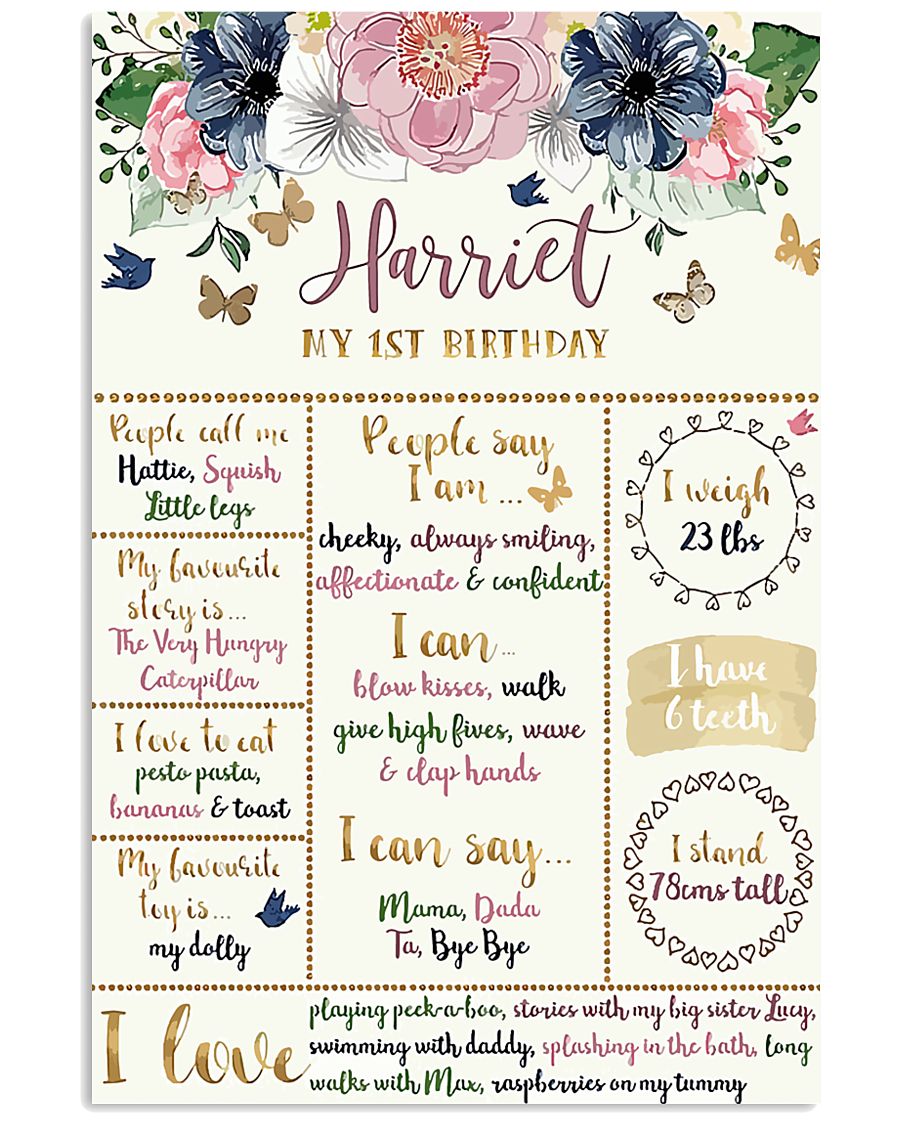 Harriet
MY 1ST BIRTHDAY
People call me
Hattie, Squish
Little legs
My favourite
story is...
The Very Hungry
Caterpillar
I love to eat
pesto pasta,
bananas & toast
My favourite
toy is...
my dolly
People say
I am ...
cheeky, always smiling,
affectionate & confident
I can...
blow kisses, walk
give high fives, wave
& clap hands
I can say...
Mama, Dada
Ta, Bye Bye
I weigh
23 lbs
I have
6 teeth
I stand
78cms tall
I love
playing peek-a-boo, stories with my big sister Lucy,
swimming with daddy, splashing in the bath, long
walks with Max, raspberries on my tummy